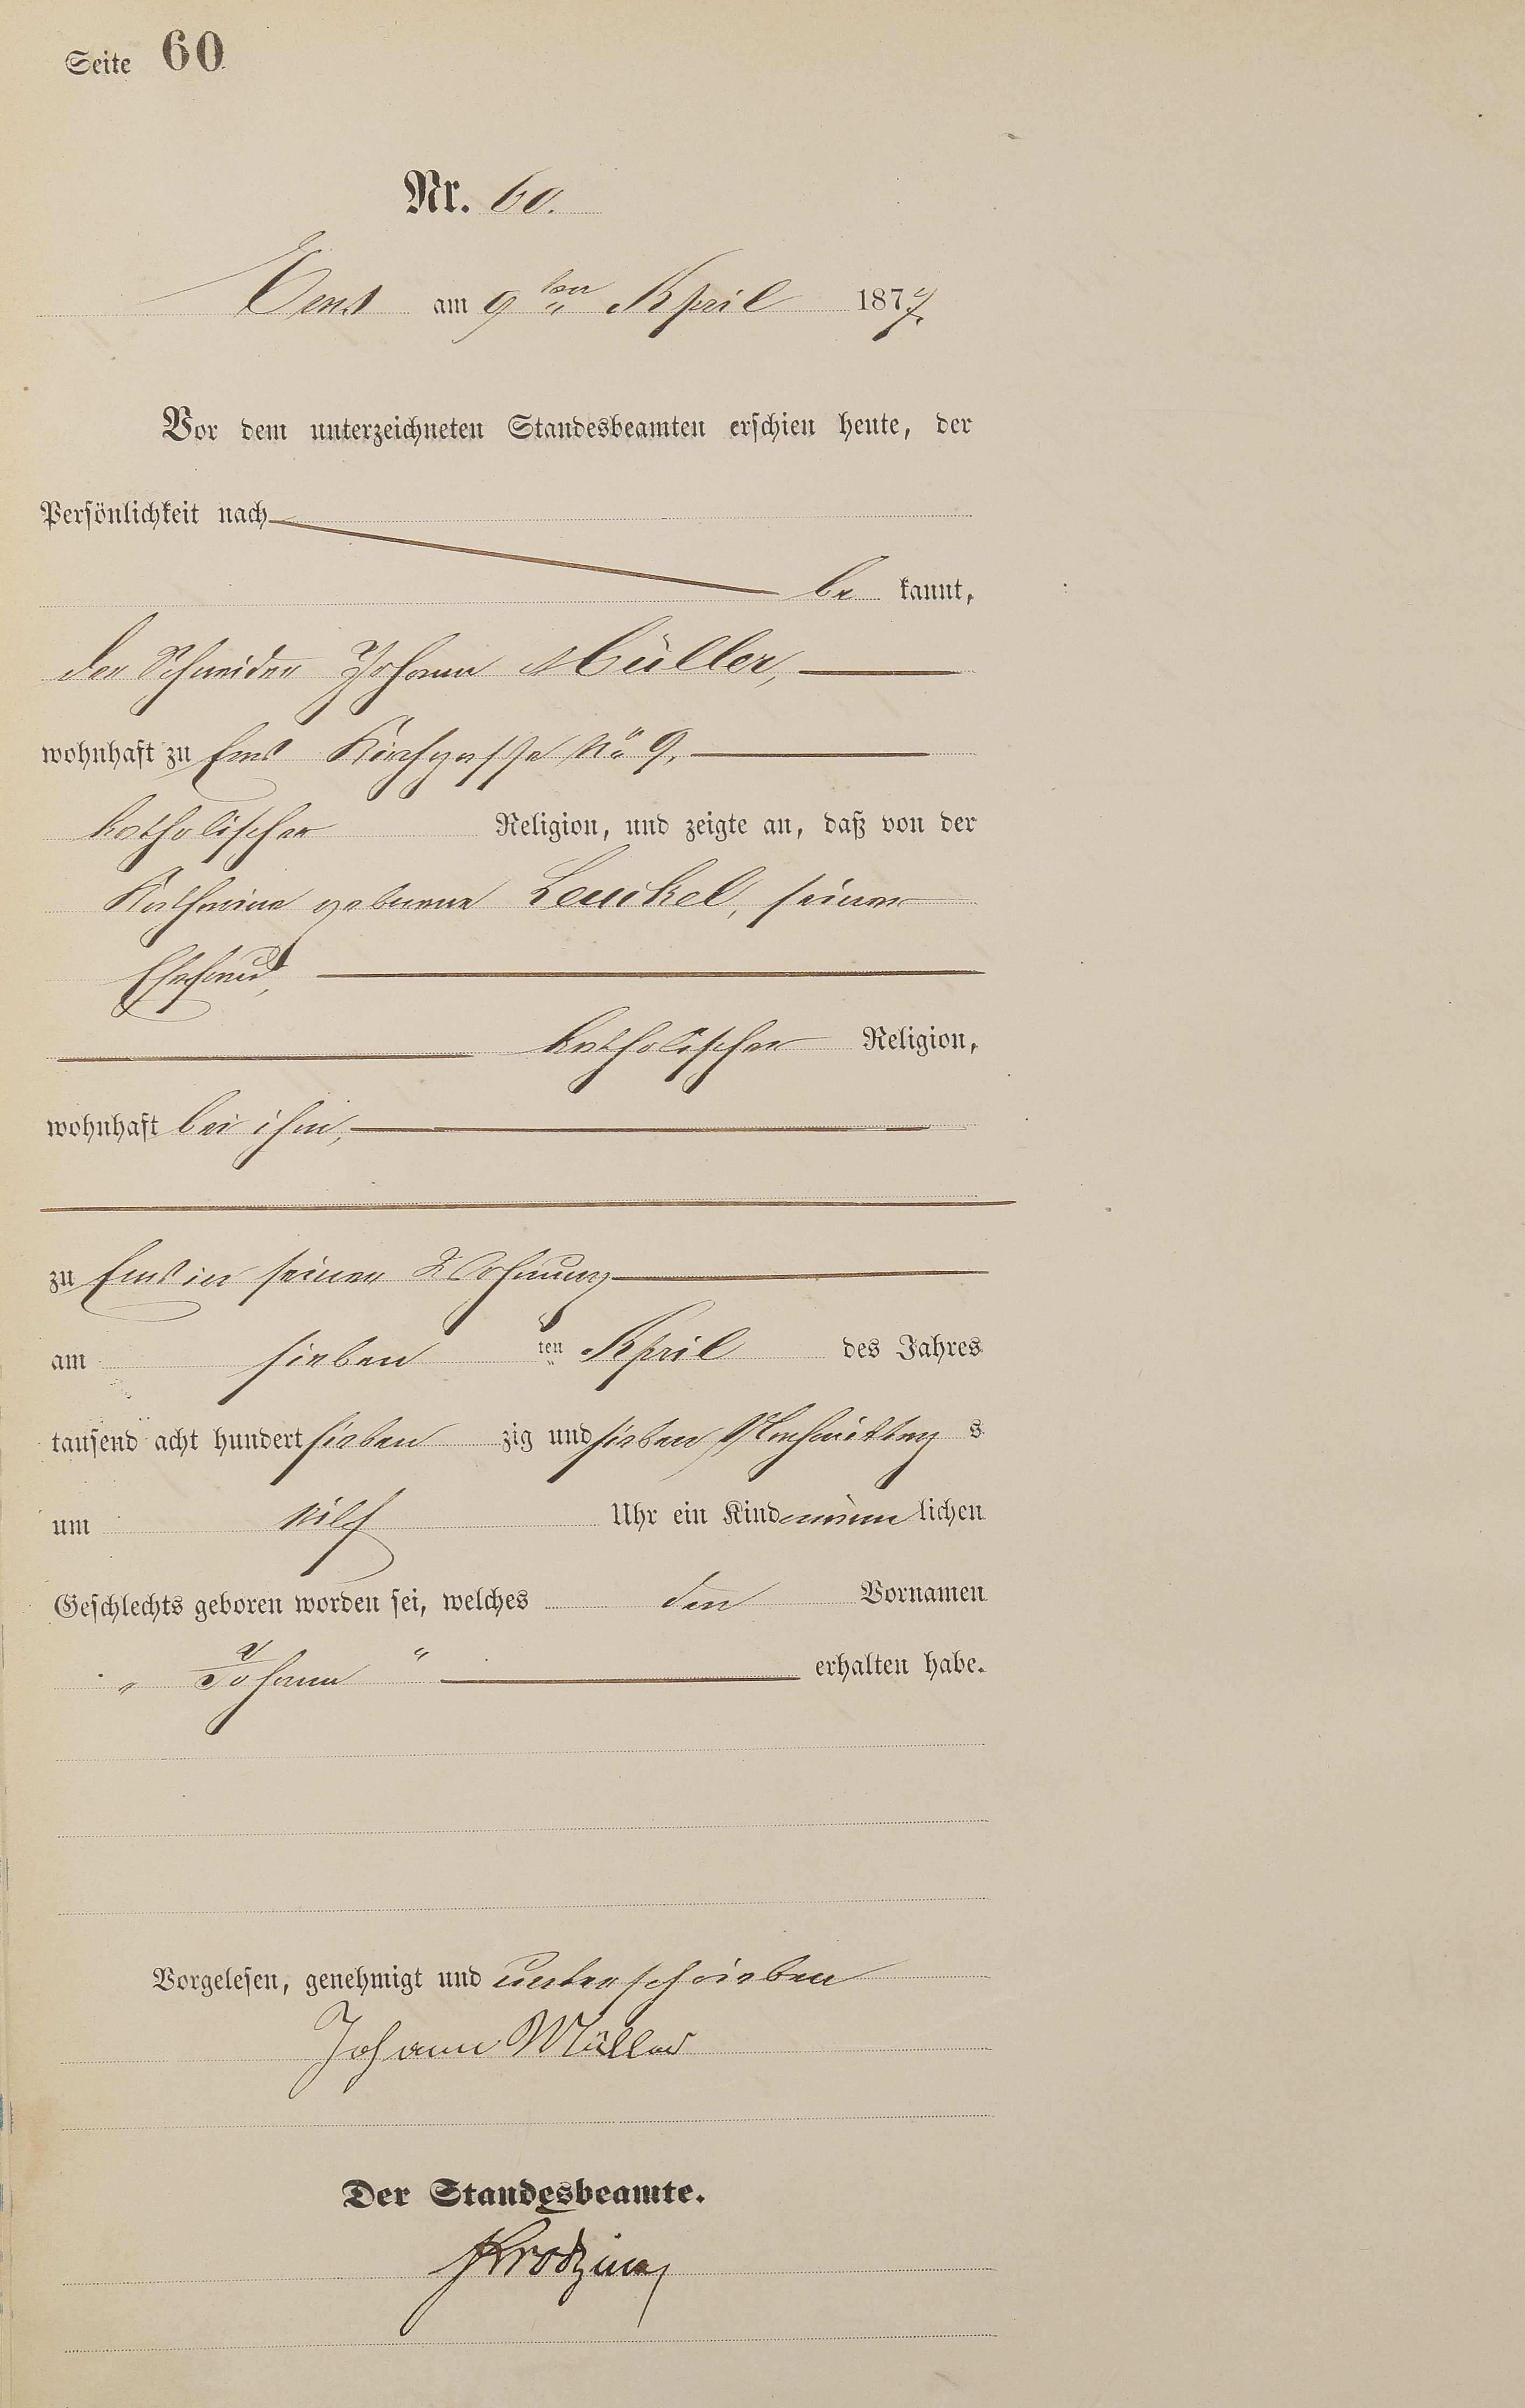 Seite 60
Nr. 60.
Ems am 9ten April 1877.
Vor dem unterzeichneten Standesbeamten erschien heute, der
Persönlichkeit nach
be kannt,
der Schneider Johann Müller,
wohnhaft zu Ems Kirchgasse No 9,
katholischer Religion, und zeigte an, daß von der
Katharina geborene Leuckel, seiner
Ehefrau,
katholischer Religion,
wohnhaft bei ihm,
zu Ems in seiner Wohnung
am sieben ten April des Jahres
tausend acht hundert sieben zig und sieben Nachmittag s
um eilf Uhr ein Kind männ lichen
Geschlechts geboren worden sei, welches den Vornamen
„ Johann “ erhalten habe.
Vorgelesen, genehmigt und unterschrieben
Johann Müller
Der Standesbeamte.